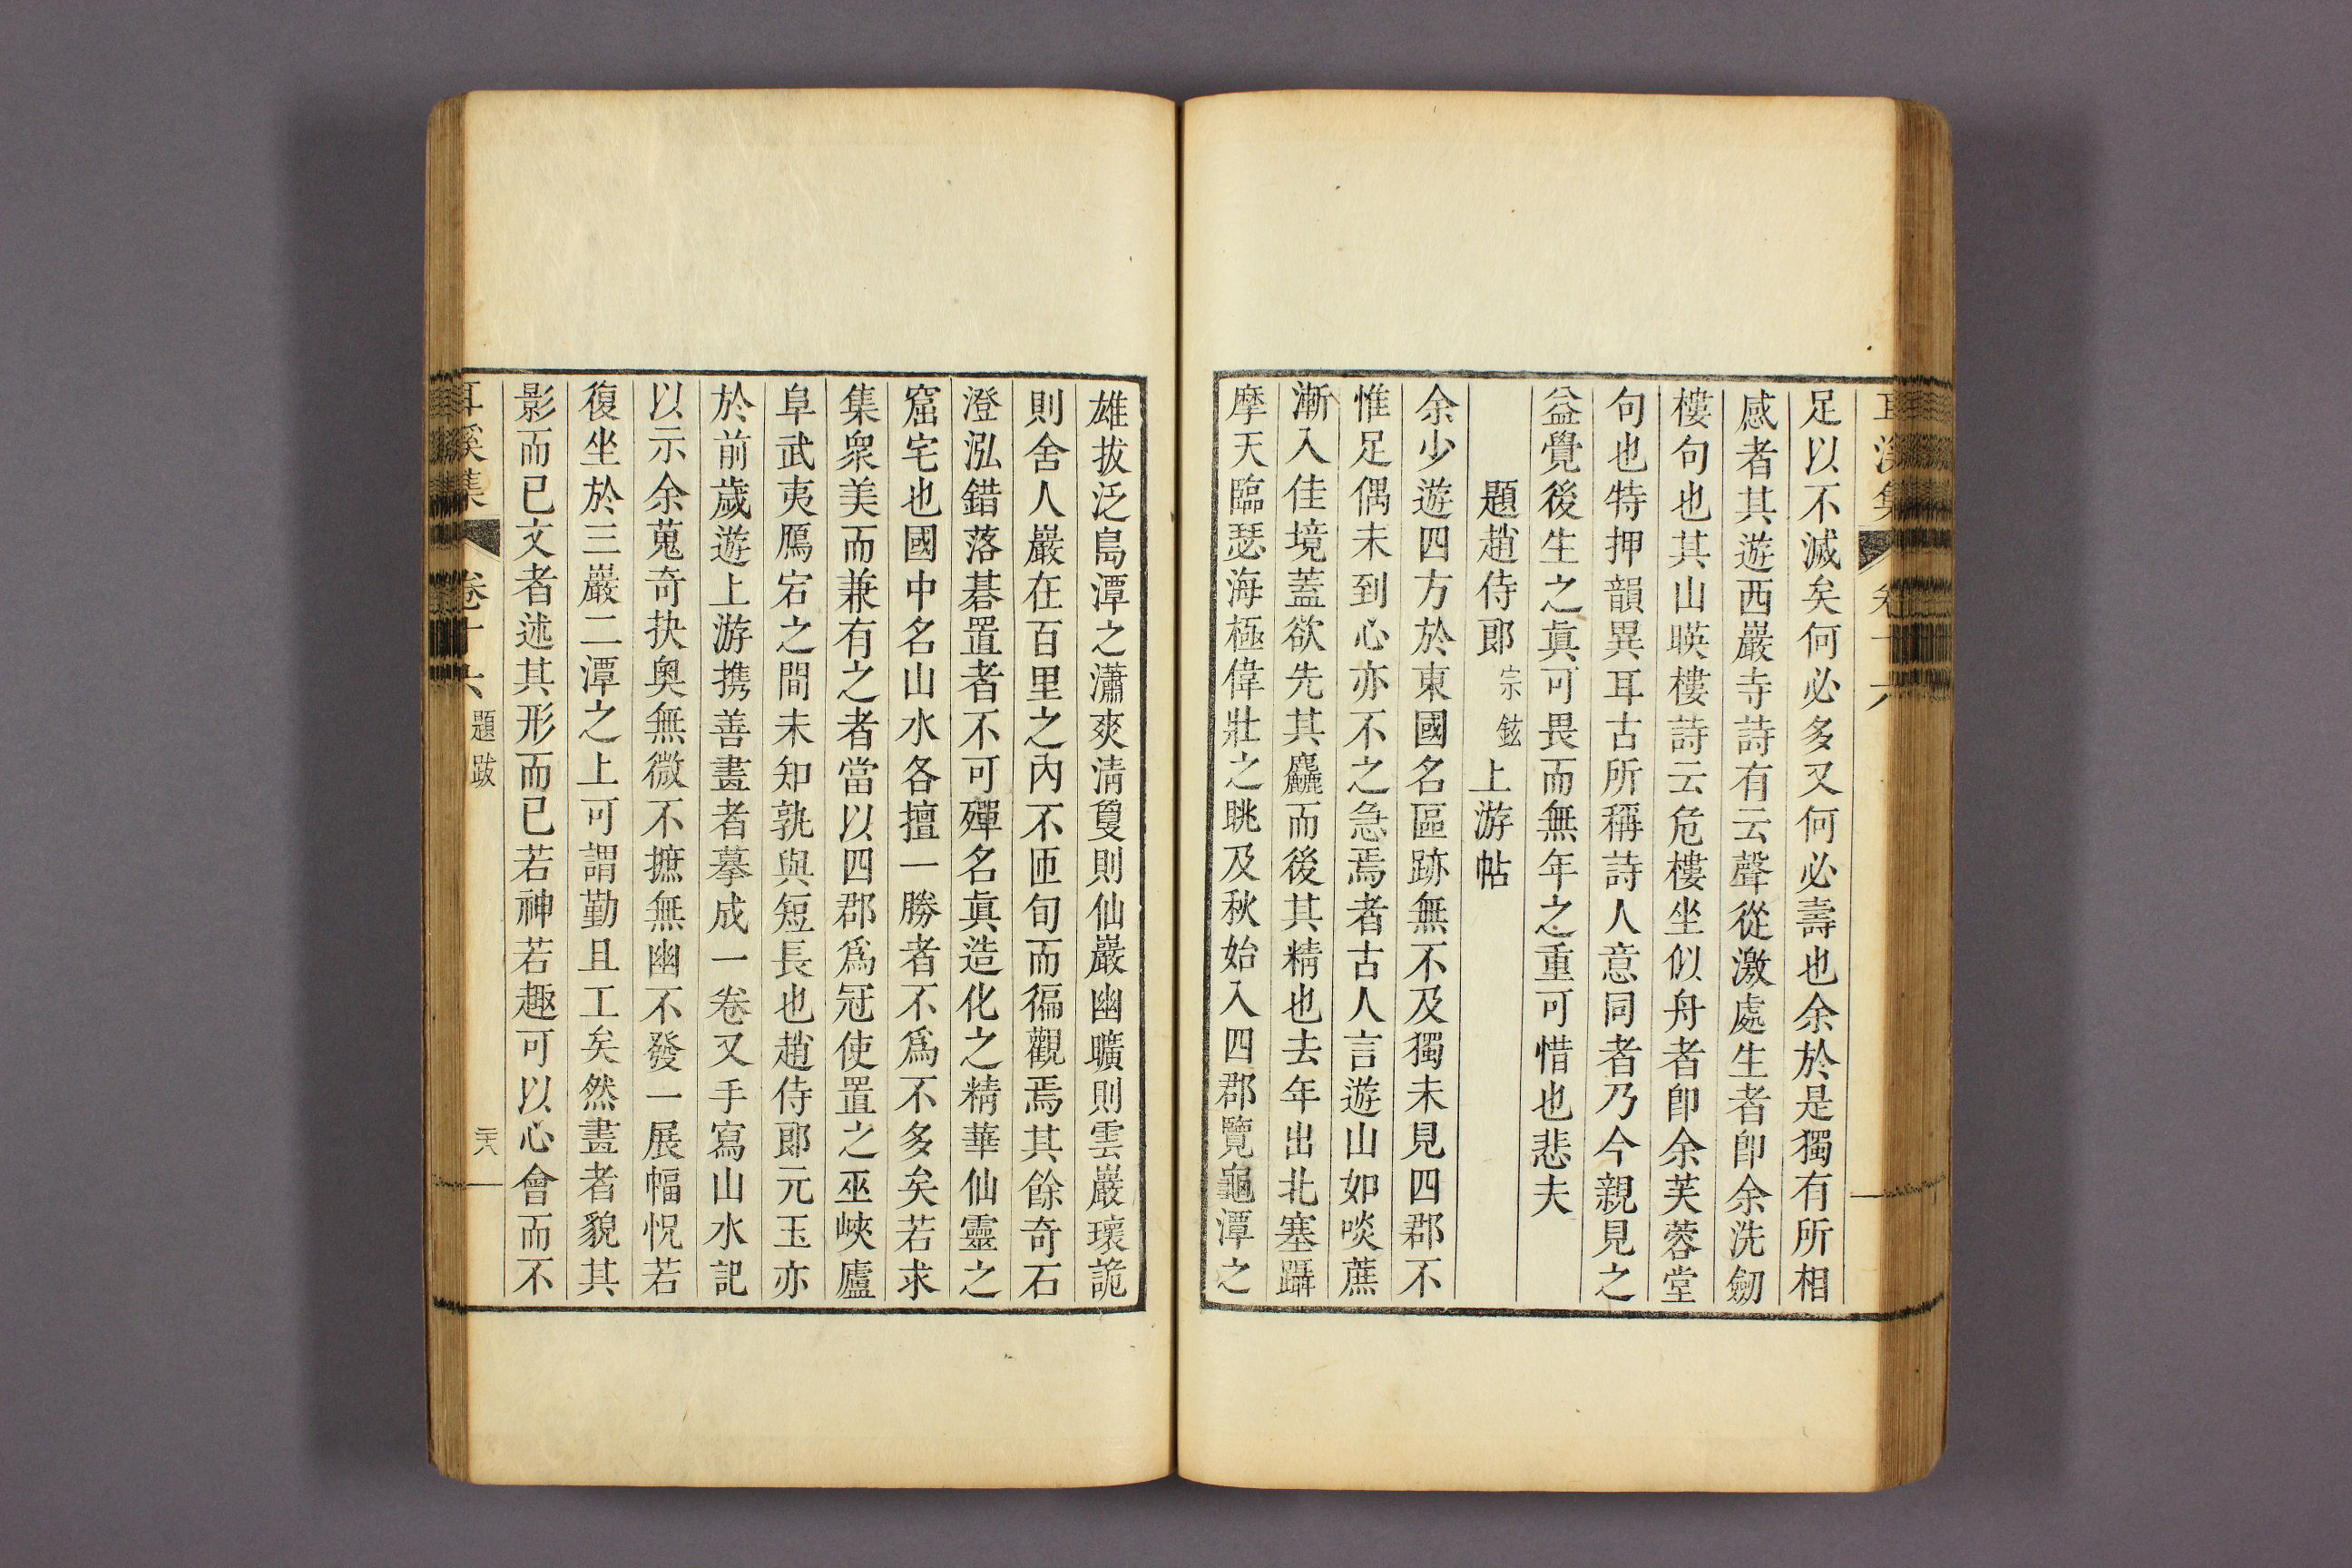 足以不滅矣何必多又何必壽也余於是獨有所相
感者其遊西巖寺詩有云聲從激處生者卽余洗劒
樓句也其山暎樓詩云危樓坐似舟者卽余芙蓉堂
句也特押韻異耳古所稱詩人意同者乃今親見之
益覺後生之眞可畏而無年之重可惜也悲夫
題趙侍郞宗鉉上游帖
余少遊四方於東國名區跡無不及獨未見四郡不
惟足偶未到心亦不之急焉者古人言遊山如啖蔗
漸入佳境蓋欲先其麤而後其精也去年出北塞躡
摩天臨瑟海極偉壯之眺及秋始入四郡覽龜潭之
雄拔泛島潭之瀟爽淸敻則仙巖幽曠則雲巖瓌詭
則舍人巖在百里之內不匝旬而徧觀焉其餘奇石
澄泓錯落碁置者不可殫名眞造化之精華仙靈之
窟宅也國中名山水各擅一勝者不爲不多矣若求
集衆美而兼有之者當以四郡爲冠使置之巫峽廬
阜武夷鴈宕之間未知孰與短長也趙侍郞元玉亦
於前歲遊上游携善畫者摹成一卷又手寫山水記
以示余蒐奇抉奧無微不摭無幽不發一展幅怳若
復坐於三巖二潭之上可謂勤且工矣然畫者貌其
影而已文者述其形而已若神若趣可以心會而不
耳溪集 卷十六 題跋 二十八